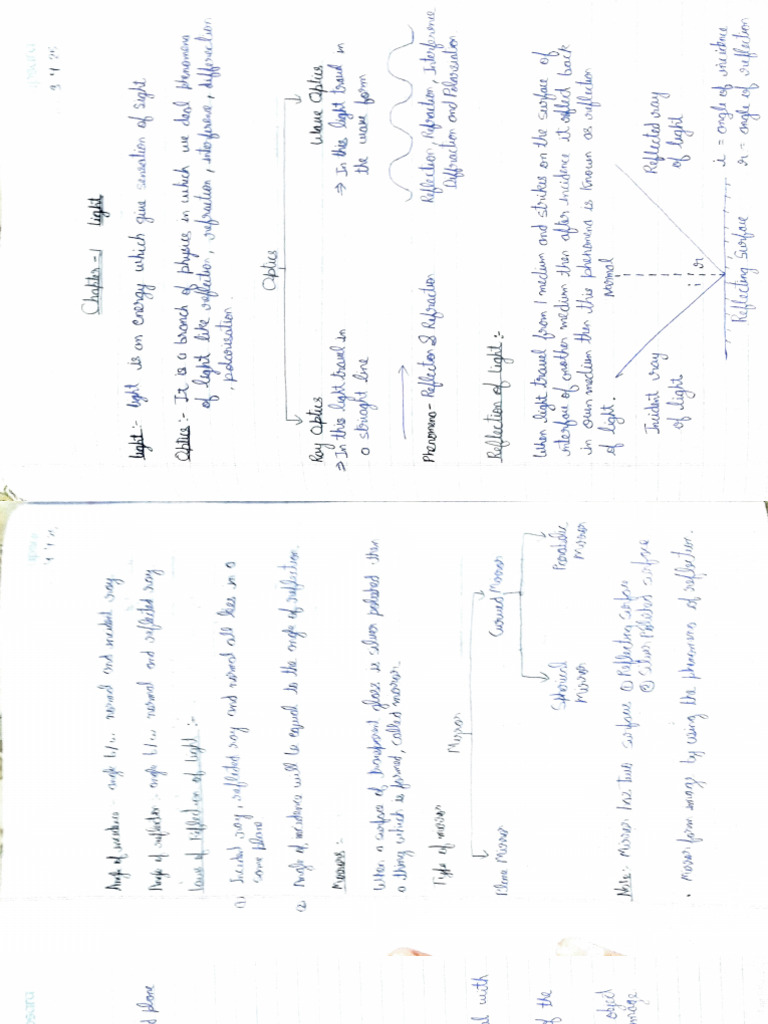 3 4 25
Chapter - 1 Light
Light :- light is an energy which give sensation of sight
Optics :- It is a branch of physics in which we deal phenomena
of light like reflection, refraction, interference, diffraction
, polarisation.
Optics
Ray Optics
⇒ In this light travel in
a straight line
Wave Optics
⇒ In this light travel in
the wave form
Phenomena - Reflection & Refraction
Reflection, Refraction, Interference
Diffraction and Polarisation
Reflection of light :-
When light travel from 1 medium and strikes on the surface of
interface of another medium then after incidence it reflect back
in own medium then this phenomena is known as reflection
of light.
Normal
Incident ray
of light.
Reflected ray
of light
i r
Reflecting Surface
i = angle of incidence
r = angle of reflection
4 4 25
Angle of incidence - angle b/w normal and incident ray
Angle of reflection - angle b/w normal and reflected ray
Laws of Reflection of light :-
1) Incident ray, reflected ray and normal all lies in a
same plane
2) Angle of incidence will be equal to the angle of reflection.
Mirrors :-
When a surface of transparent glass is silver polished then
a thing which is formed, called mirror.
Type of mirror
Mirror
Plane Mirror
Curved Mirror
Spherical
Mirror
Parabolic
Mirror
Note :- Mirror has two surface ① Reflecting surface
② Silver Polished surface
• Mirror form image by using the phenomena of reflection.
plane
with
of the
object